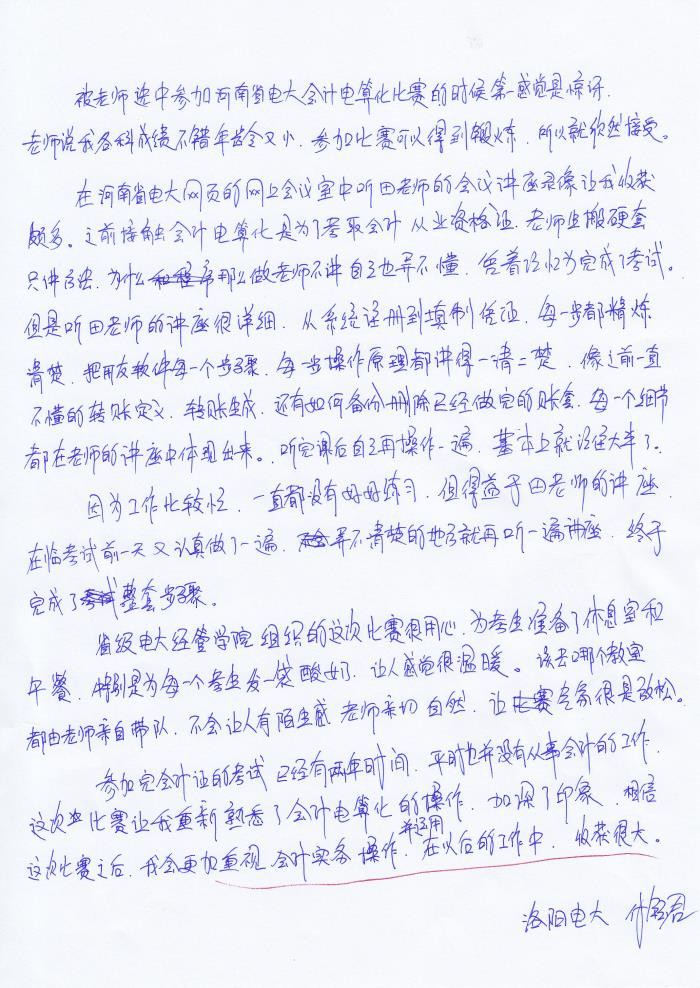 被老师选中参加河南省电大会计电算化比赛的时候第一感觉是惊讶.
老师说我各科成绩不错年龄又小.参加比赛可以得到锻炼.所以就欣然接受。
在河南省电大网页的网上会议室中听田老师的会议讲座录像让我收获
颇多。之前接触会计电算化是为了考取会计从业资格证.老师生搬硬套
只讲方法.为什么那么做老师不讲自己也弄不懂.凭着记忆力完成了考试。
但是听田老师的讲座很详细.从系统注册到填制凭证.每一步都精炼
清楚.把用友软件每一个步骤.每一步操作原理都讲得一清二楚.像之前一直
不懂的转账定义.转账生成.还有如何备份删除已经做完的账套.每一个细节
都在老师的讲座中体现出来。听完课后自己再操作一遍.基本上就记住大半了.
因为工作比较忙.一直都没有好好练习.但得益于田老师的讲座.
在临考试前一天又认真做了一遍.弄不清楚的地方就再听一遍讲座.终于
完成了整套步骤。
省级电大经管学院组织的这次比赛很用心.为考生准备了休息室和
午餐.特别是为每一个考生发一袋酸奶.让人感觉很温暖。该去哪个教室
都由老师亲自带队.不会让人有陌生感 老师亲切自然.让大家很是放松。
参加完会计证的考试已经有两年时间.平时也并没有从事会计的工作.
这次比赛让我重新熟悉了会计电算化的操作.加深了印象.相信
这次比赛之后.我会更加重视会计实务操作.并运用在以后的工作中.收获很大。
洛阳电大